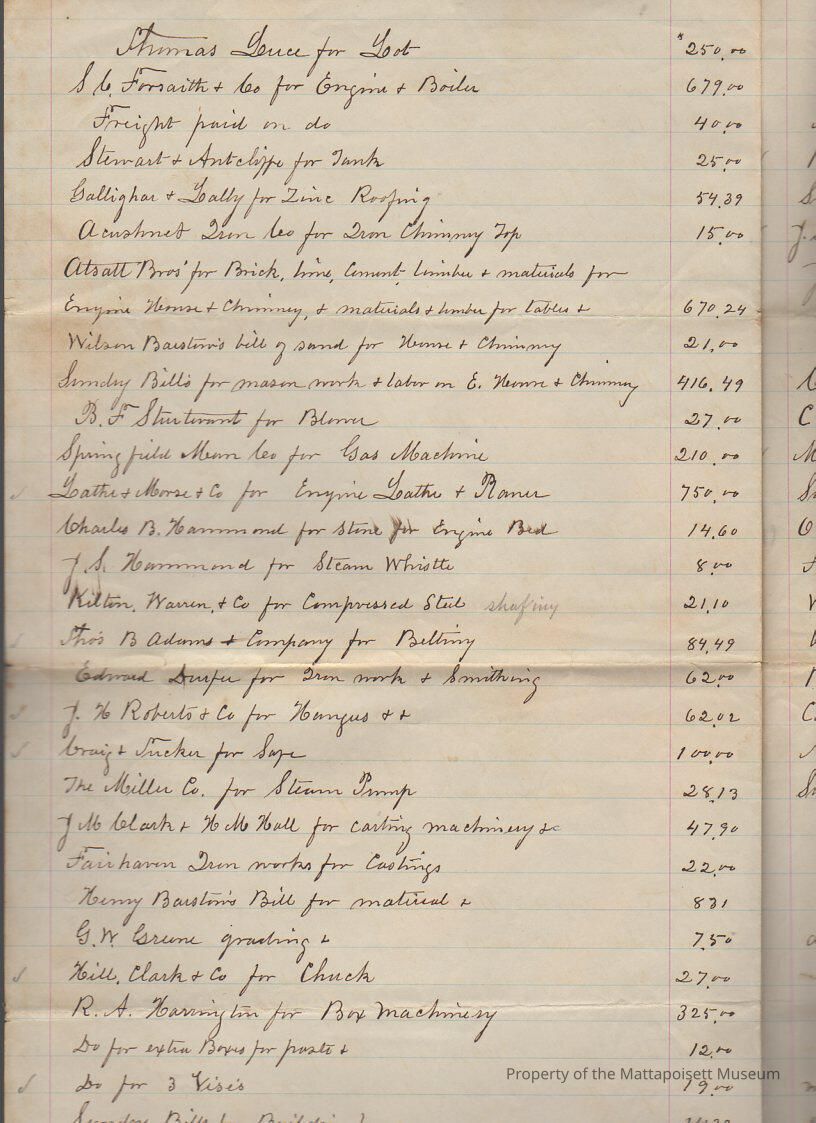 Thomas Luce for Lot $250.00
S. C. Forsaith & Co for Engine & Boiler 679.00
Freight paid on do 40.00
Stewart & Antcliffe for Tank 25.00
Gallighar & Lally for Zinc Roofing 54.39
Acushnet Iron Co for Iron Chimney Top 15.00
Atsatt Bros' for Brick, lime, Cement, lumber & materials for
Engine House & Chimney, & materials & lumber for tables & 670.24
Wilson Barstow's bill of sand for House & Chimney 21.00
Sundry Bills for mason work & labor on E. House & Chimney 416.49
B. F Sturtevant for Blower 27.00
Springfield Mean Co for Gas Machine 210.00
Lathe & Morse & Co for Engine Lathe & Planer 750.00
Charles B. Hammond for stone for Engine Bed 14.60
J. S. Hammond for Steam Whistle 8.00
Kilton, Warren, & Co for Compressed Steel shafting 21.10
Tho's B Adams & Company for Belting 84.49
Edward Durfee for Iron work & Smithing 62.00
J. H Roberts & Co for Hangers & & 62.02
Craig & Tucker for Safe 100.00
The Miller Co. for Steam Pump 28.13
J M Clark & H M Hall for carting machinery &c 47.90
Fairhaven Iron works for Castings 22.00
Henry Barstow's Bill for material & 831
G. W. Greene grading & 7.50
Hill, Clark & Co for Chuck 27.00
R. A. Harrington for Box Machinery 325.00
Do for extra Boxes for posts & 12.00
Do for 3 Vises 19.00
Property of the Mattapoisett Museum
Sundry Bills